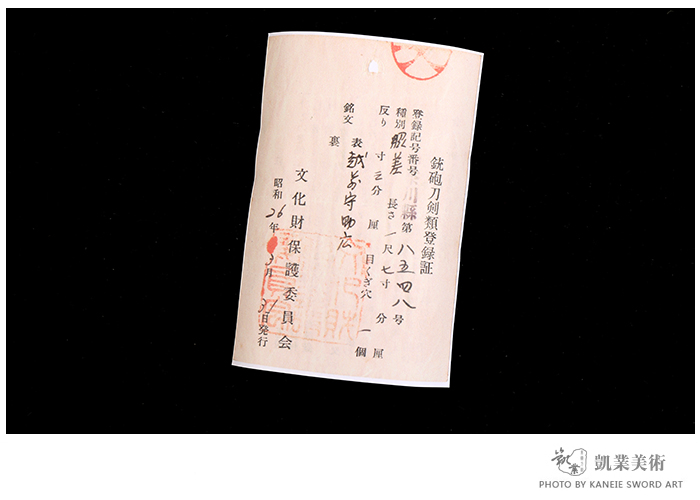 銃砲刀剣類登録証
登録記号番号 川縣第八五四八号
種別 脇差 長さ 一尺七寸 分 厘
反り 寸三分 厘 目くぎ穴 一個
銘文 表 越前守助広
裏
文化財保護委員会
昭和26年3月31日発行
凱業
凱業美術
PHOTO BY KANEIE SWORD ART